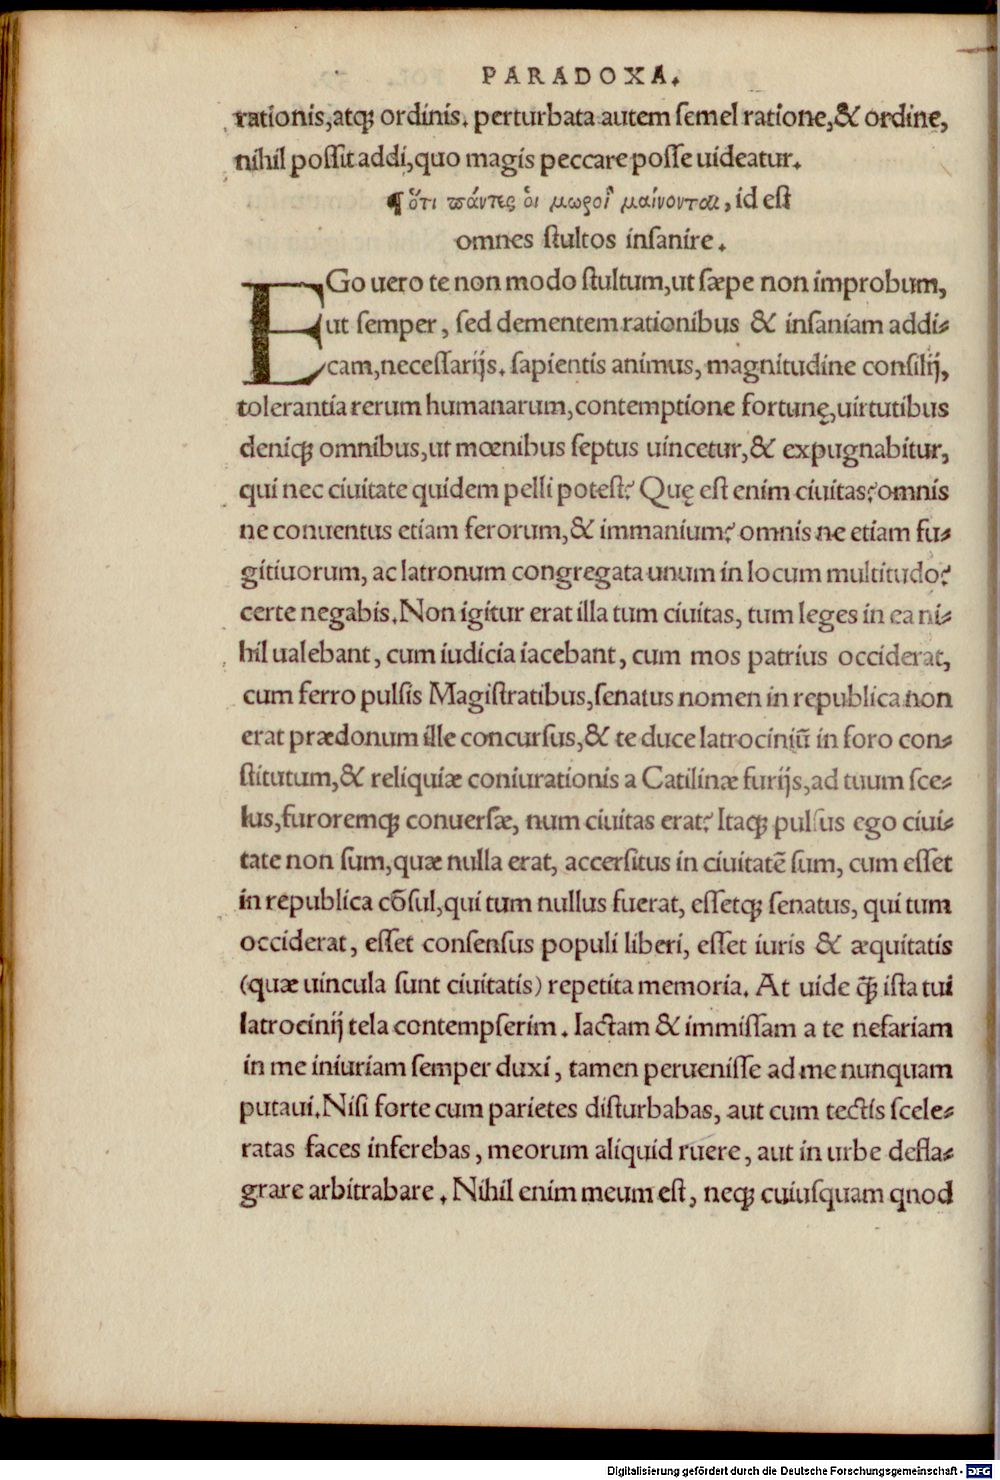 PARADOXA.
rationis, atq; ordinis. perturbata autem semel ratione, & ordine,
nihil possit addi, quo magis peccare posse uideatur.
¶ ὅτι πάντες ὁι μωροὶ μαίνονται, id est
omnes stultos insanire.
EGo uero te non modo stultum, ut sæpe non improbum,
ut semper, sed dementem rationibus & insaniam addi-
cam, necessarijs. sapientis animus, magnitudine consilij,
tolerantia rerum humanarum, contemptione fortunę, uirtutibus
deniq; omnibus, ut mœnibus septus uincetur, & expugnabitur,
qui nec ciuitate quidem pelli potest? Quę est enim ciuitas? omnis
ne conuentus etiam ferorum, & immanium? omnis ne etiam fu-
gitiuorum, ac latronum congregata unum in locum multitudo?
certe negabis. Non igitur erat illa tum ciuitas, tum leges in ea ni-
hil ualebant, cum iudicia iacebant, cum mos patrius occiderat,
cum ferro pulsis Magistratibus, senatus nomen in republica non
erat prædonum ille concursus, & te duce latrociniū in foro con-
stitutum, & reliquiæ coniurationis a Catilinæ furijs, ad tuum sce-
lus, furoremq; conuersæ, num ciuitas erat? Itaq; pulsus ego ciui-
tate non sum, quæ nulla erat, accersitus in ciuitatē sum, cum esset
in republica cōsul, qui tum nullus fuerat, essetq; senatus, qui tum
occiderat, esset consensus populi liberi, esset iuris & æquitatis
(quæ uincula sunt ciuitatis) repetita memoria. At uide q̄; ista tui
latrocinij tela contempserim. Iactam & immissam a te nefariam
in me iniuriam semper duxi, tamen peruenisse ad me nunquam
putaui. Nisi forte cum parietes disturbabas, aut cum tectis scele-
ratas faces inferebas, meorum aliquid ruere, aut in urbe defla-
grare arbitrabare. Nihil enim meum est, neq; cuiusquam qnod
Digitalisierung gefördert durch die Deutsche Forschungsgemeinschaft - DFG